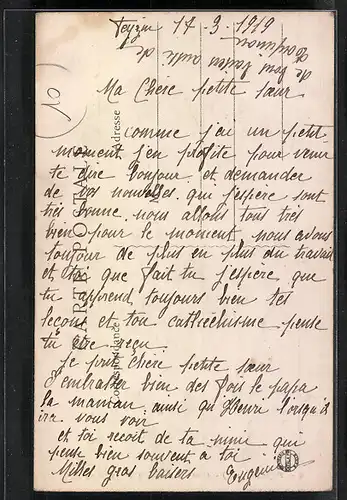 17-3-1919
Ma Chère petite sœur
comme j'ai un petit
moment j'en profite pour venir
te dire bonjour et demander
de vos nouvelles qui j'espère sont
très bonne. nous allons tous très
bien pour le moment nous avons
toujour de plus en plus du travail
et toi que fait tu j'espère que
tu apprend toujours bien tes
leçons et ton cathéchisme pense
tu être reçu
je prit chère petite sœur
d'embrasser bien des fois le papa
la maman ainsi qu Henri lorsqu'il
ira vous voir
et toi recoit de ta mimi qui
pense bien souvent a toi
Milles gros baisers Eugénie
CARTE POSTALE
Correspondance
Adresse
10